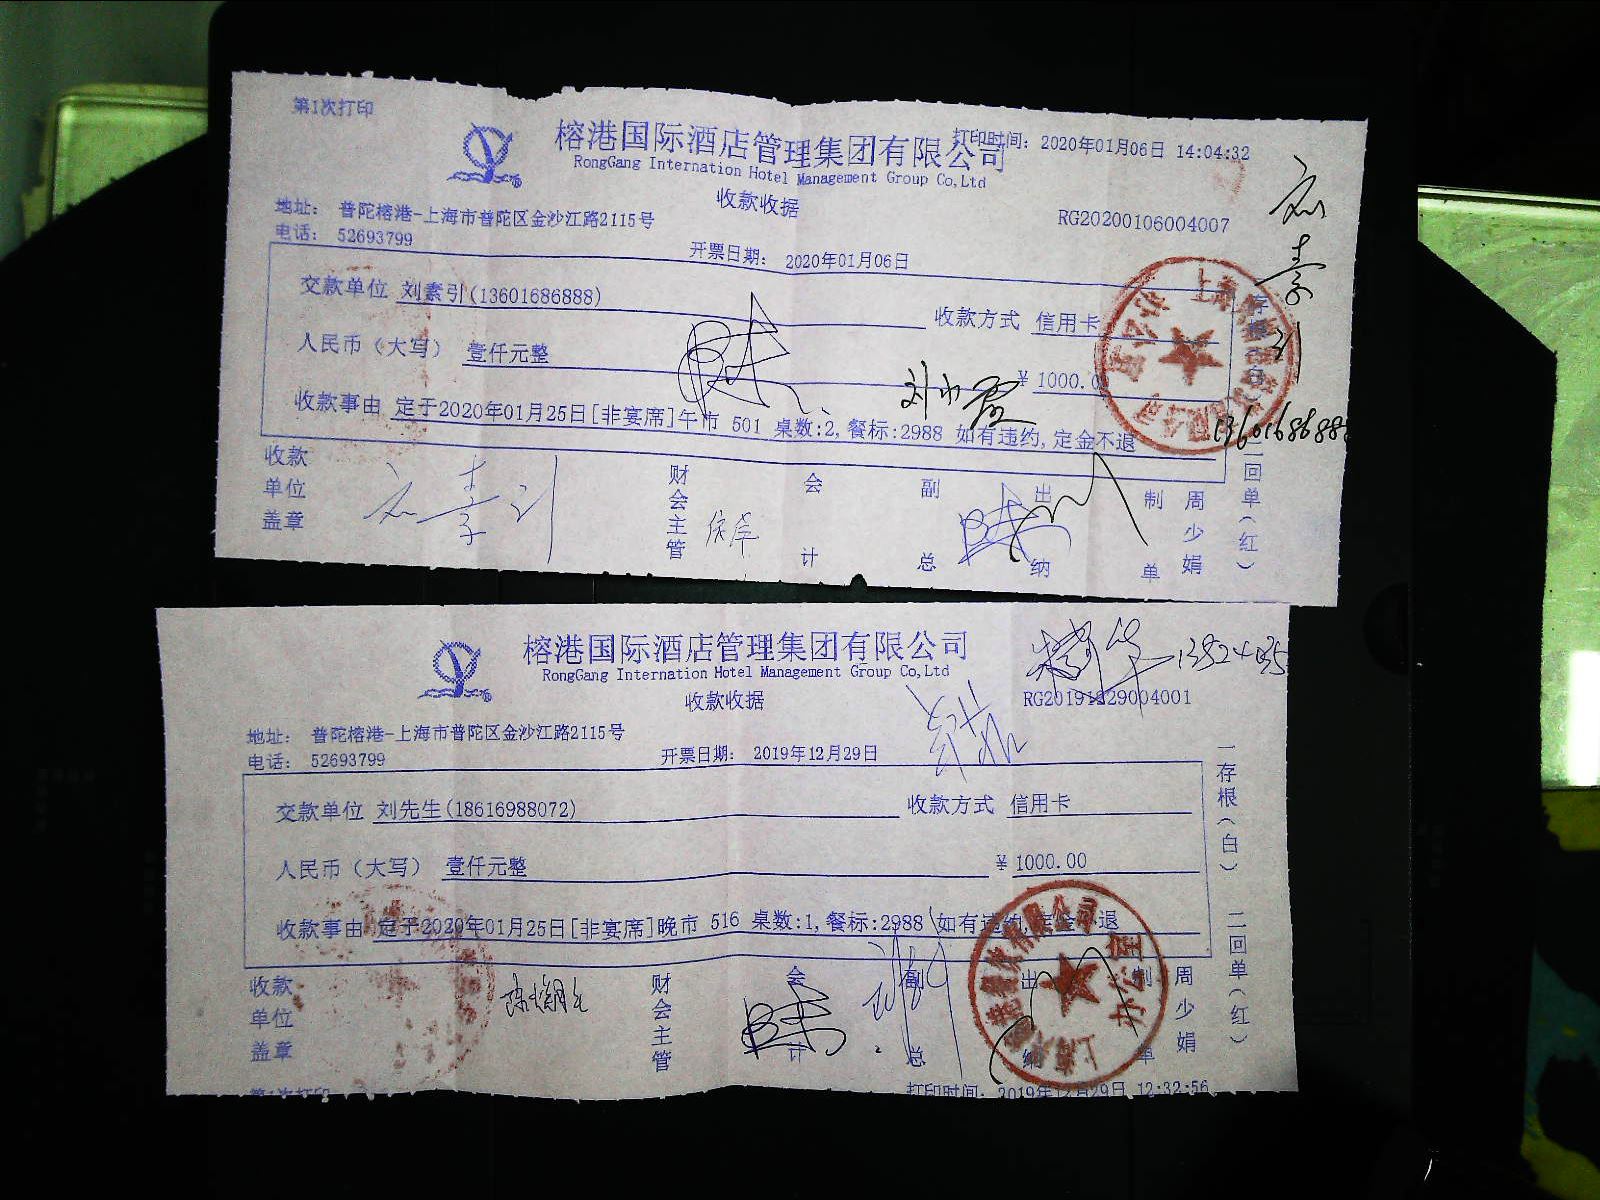 第1次打印
打印时间: 2020年01月06日 14:04:32
榕港国际酒店管理集团有限公司
RongGang Internation Hotel Management Group Co,Ltd
收款收据
RG20200106004007
地址: 普陀榕港-上海市普陀区金沙江路2115号
电话: 52693799
开票日期: 2020年01月06日
交款单位 刘素引(13601686888) 收款方式 信用卡
人民币（大写） 壹仟元整 ¥ 1000.0
收款事由 定于2020年01月25日[非宴席]午市 501 桌数:2,餐标:2988 如有违约,定金不退
收款单位盖章 财会主管 会计 副总 出纳 制单 周少娟
二回单(红)
刘素引
13601686888
榕港国际酒店管理集团有限公司
RongGang Internation Hotel Management Group Co,Ltd
收款收据
RG20191229004001
地址: 普陀榕港-上海市普陀区金沙江路2115号
电话: 52693799
开票日期: 2019年12月29日
交款单位 刘先生(18616988072) 收款方式 信用卡
人民币（大写） 壹仟元整 ¥ 1000.00
收款事由 定于2020年01月25日[非宴席]晚市 516 桌数:1,餐标:2988 如有违约,定金不退
收款单位盖章 财会主管 会计 副总 出纳 制单 周少娟
一存根(白) 二回单(红)
第1次打印
打印时间: 2019年12月29日 12:32:56